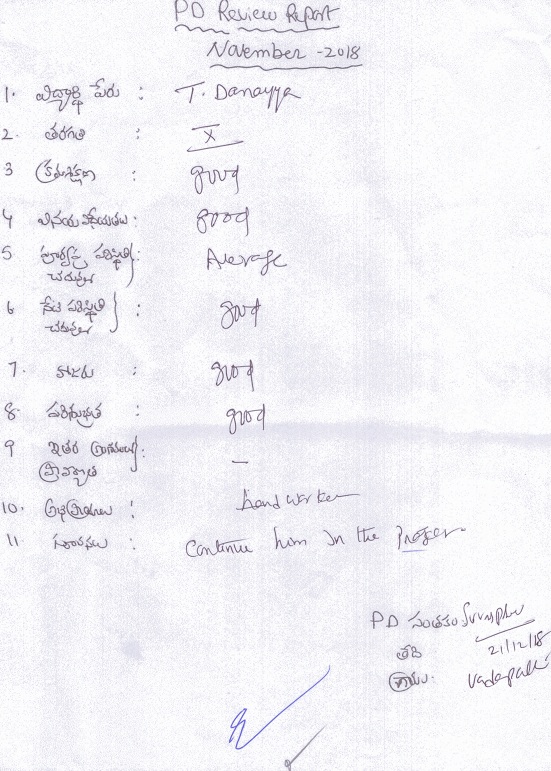 PD Review Report
November - 2018
1. విద్యార్థి పేరు : T. Danayya
2. తరగతి : X
3 క్రమశిక్షణ : good
4 వినయ విధేయతలు : good
5 పూర్వపు పరిస్థితి
చదువులో : Average
6 నేటి పరిస్థితి
చదువులో : good
7. హాజరు : good
8. పరిశుభ్రత : good
9 ఇతర
ప్రావీణ్యత : —
10. అభిప్రాయాలు : hand worker
11 సూచనలు : Continue him in the
PD సంతకం
తేది 21/12/18
గ్రామం: